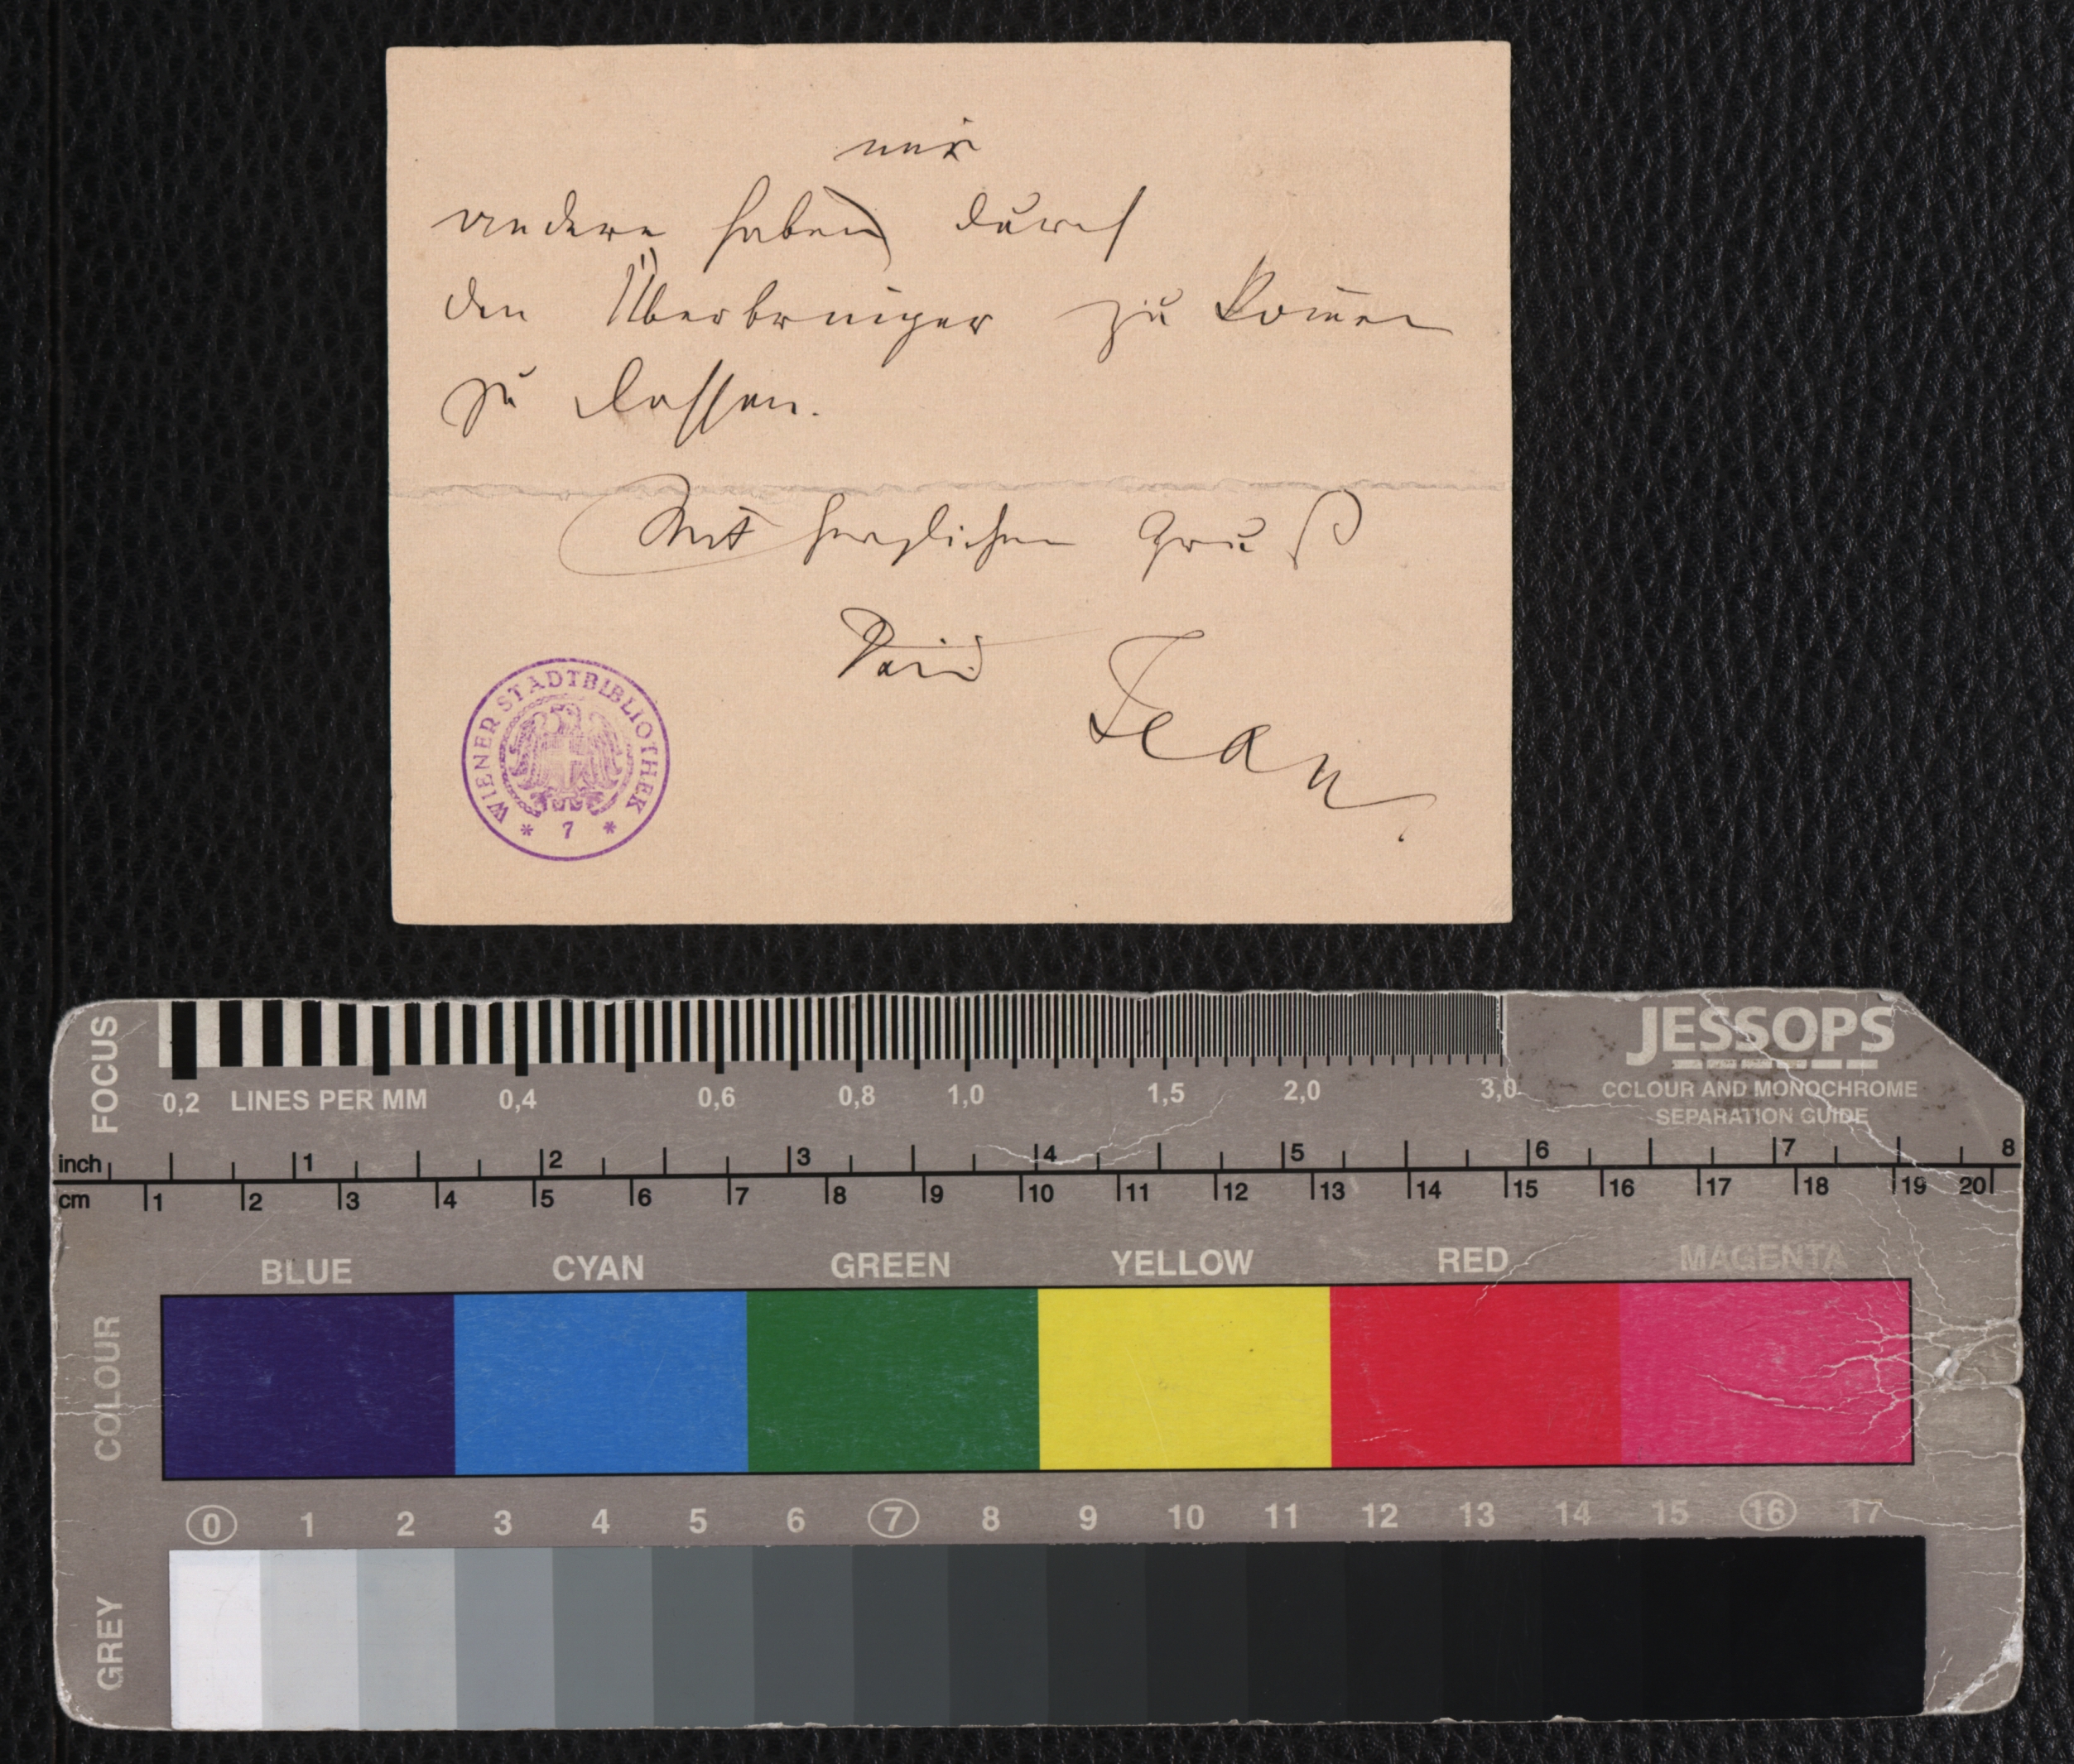 mir
andere haben) durch
den Überbringer zu kom̄en
zu lassen.
Mit herzlichem Gruß
Dein Jean.
WIENER STADTBIBLIOTHEK
* 7 *
FOCUS
JESSOPS
COLOUR AND MONOCHROME
SEPARATION GUIDE
0,2 LINES PER MM 0,4 0,6 0,8 1,0 1,5 2,0 3,0
inch 1 2 3 4 5 6 7 8
cm 1 2 3 4 5 6 7 8 9 10 11 12 13 14 15 16 17 18 19 20
BLUE CYAN GREEN YELLOW RED MAGENTA
COLOUR
0 1 2 3 4 5 6 7 8 9 10 11 12 13 14 15 16 17
GREY